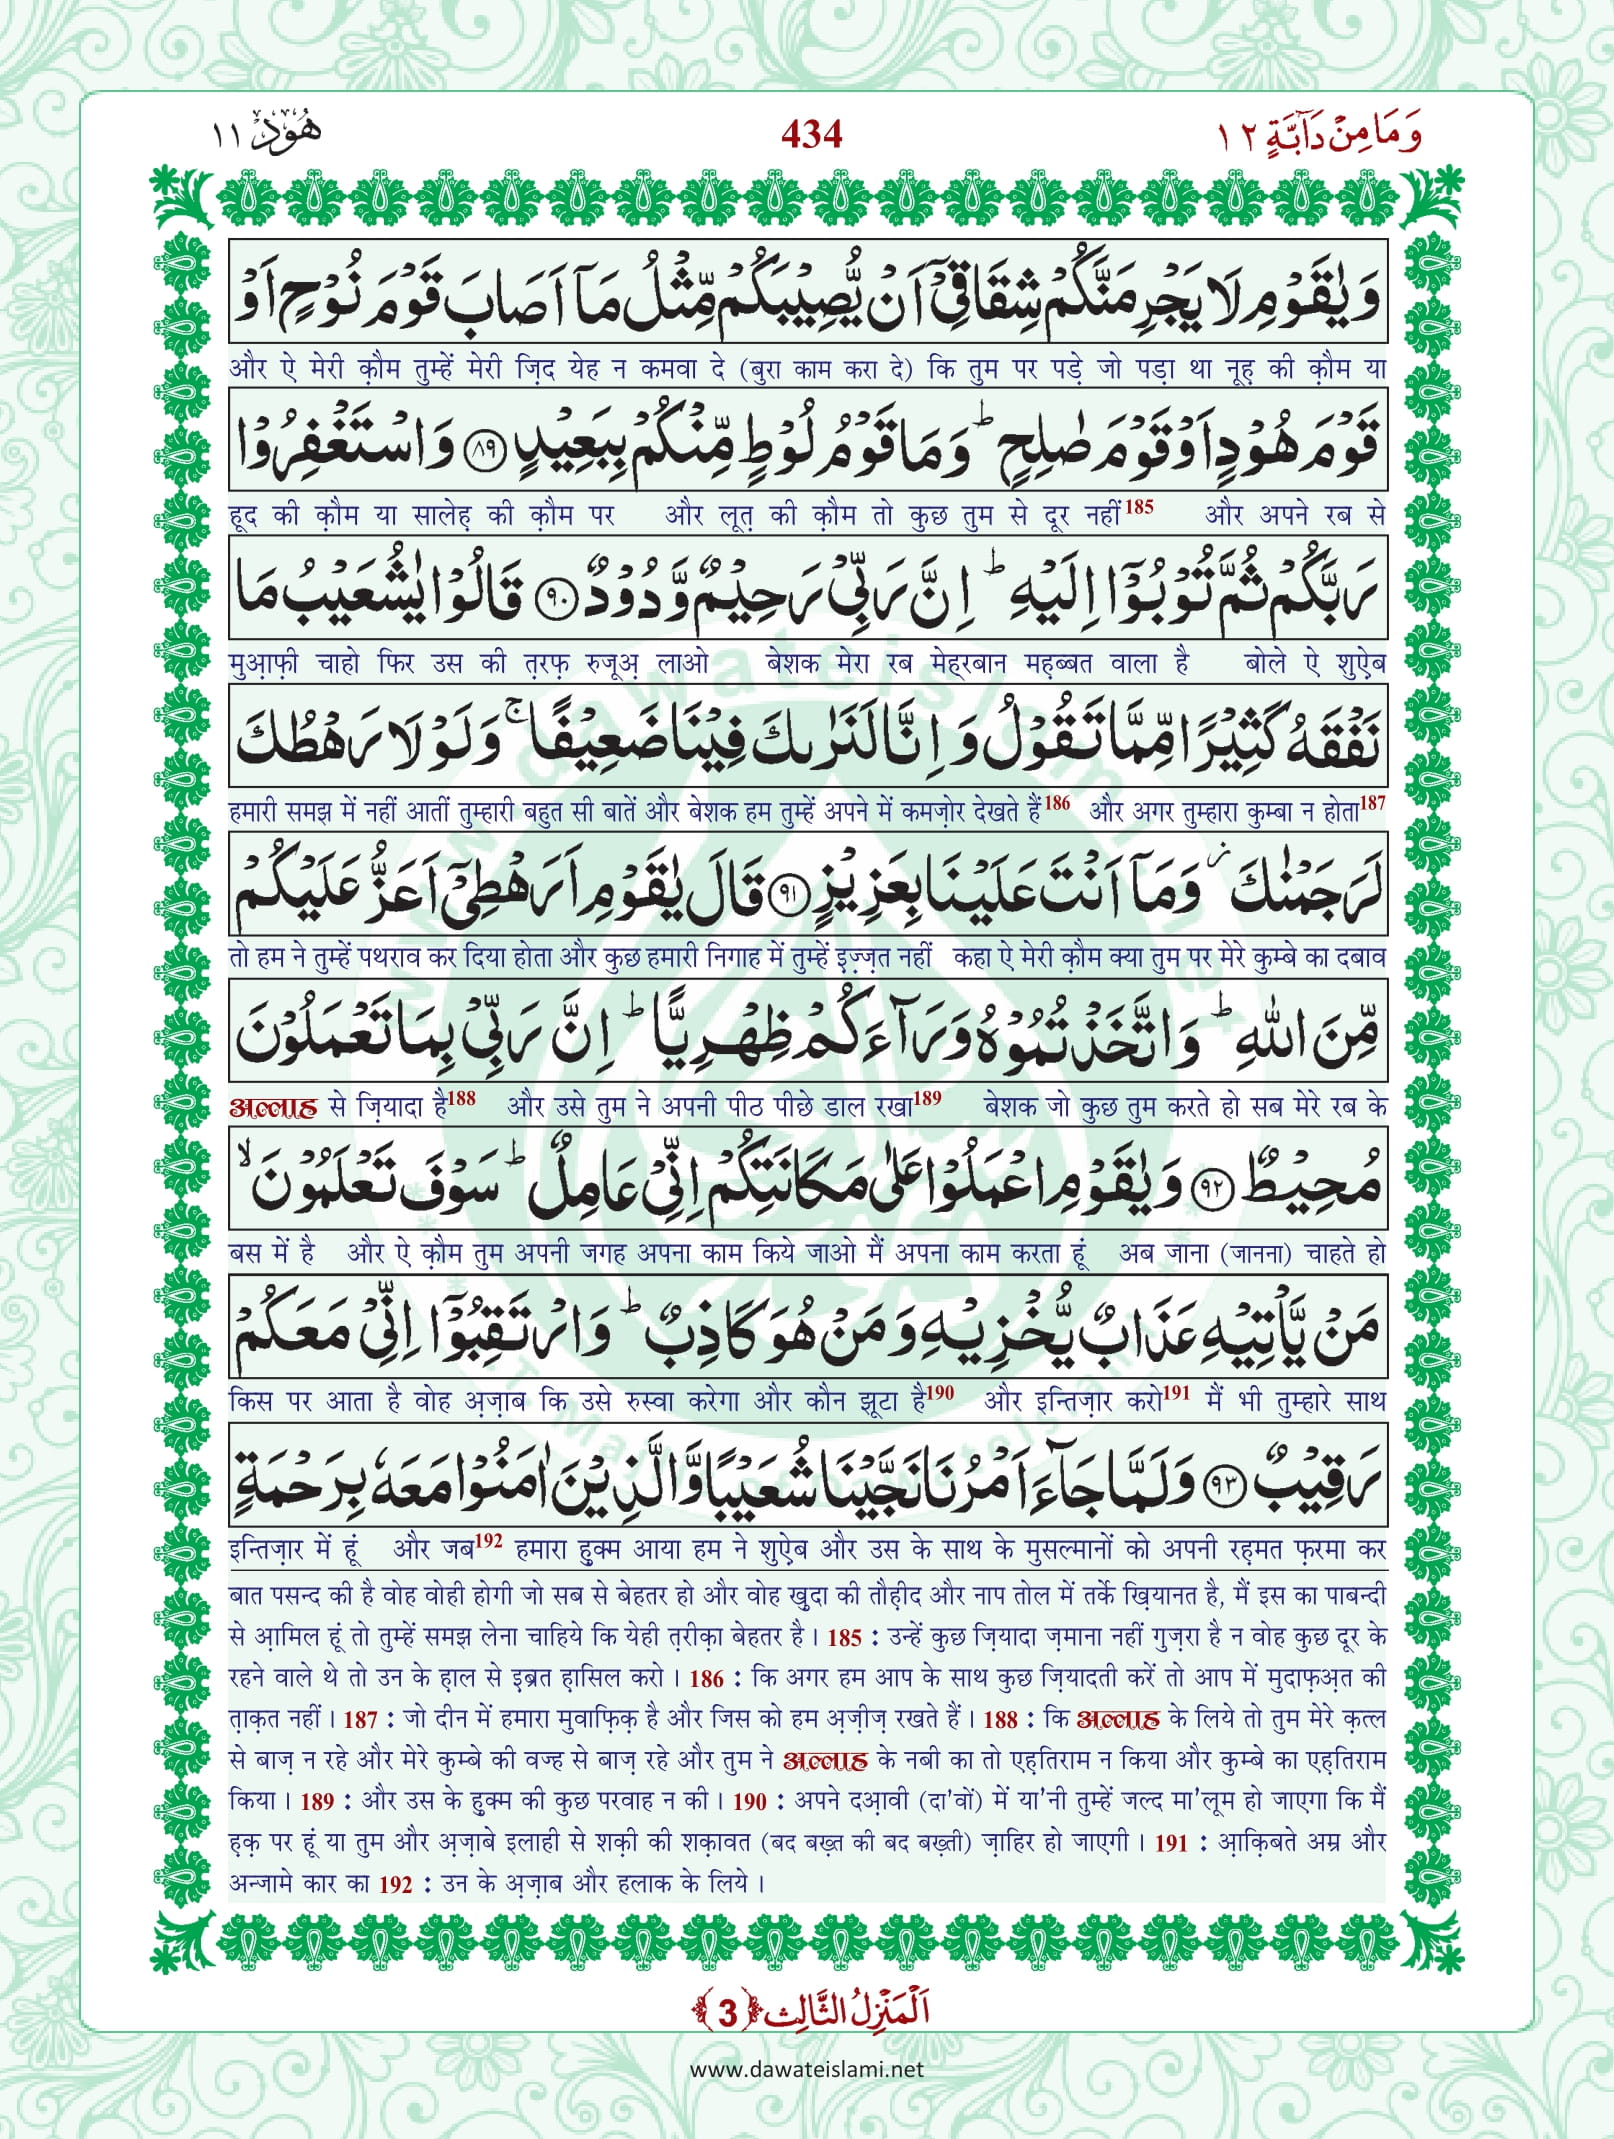 وَمَا مِنْ دَآبَّةٍ ١٢
434
هُوْد ١١
وَيٰقَوْمِ لَا يَجْرِمَنَّكُمْ شِقَاقِيْۤ اَنْ يُّصِيْبَكُمْ مِّثْلُ مَاۤ اَصَابَ قَوْمَ نُوْحٍ اَوْ
और ऐ मेरी क़ौम तुम्हें मेरी ज़िद येह न कमवा दे (बुरा काम करा दे) कि तुम पर पड़े जो पड़ा था नूह़ की क़ौम या
قَوْمَ هُوْدٍ اَوْ قَوْمَ صٰلِحٍ ؕ وَمَا قَوْمُ لُوْطٍ مِّنْكُمْ بِبَعِيْدٍ ﴿٨٩﴾ وَاسْتَغْفِرُوْا
हूद की क़ौम या सालेह़ की क़ौम पर और लूत़ की क़ौम तो कुछ तुम से दूर नहीं185 और अपने रब से
رَبَّكُمْ ثُمَّ تُوْبُوْۤا اِلَيْهِ ؕ اِنَّ رَبِّيْ رَحِيْمٌ وَّدُوْدٌ ﴿٩٠﴾ قَالُوْا يٰشُعَيْبُ مَا
मुआ़फ़ी चाहो फिर उस की त़रफ़ रुजूअ़ लाओ बेशक मेरा रब मेह्‌रबान मह़ब्बत वाला है बोले ऐ शुऐ़ब
نَفْقَهُ كَثِيْرًا مِّمَّا تَقُوْلُ وَاِنَّا لَنَرٰىكَ فِيْنَا ضَعِيْفًا ۚ وَلَوْلَا رَهْطُكَ
हमारी समझ में नहीं आतीं तुम्हारी बहुत सी बातें और बेशक हम तुम्हें अपने में कमज़ोर देखते हैं186 और अगर तुम्हारा कुम्बा न होता187
لَرَجَمْنٰكَ ؗ وَمَاۤ اَنْتَ عَلَيْنَا بِعَزِيْزٍ ﴿٩١﴾ قَالَ يٰقَوْمِ اَرَهْطِيْۤ اَعَزُّ عَلَيْكُمْ
तो हम ने तुम्हें पथराव कर दिया होता और कुछ हमारी निगाह में तुम्हें इ़ज़्ज़त नहीं कहा ऐ मेरी क़ौम क्या तुम पर मेरे कुम्बे का दबाव
مِّنَ اللّٰهِ ؕ وَاتَّخَذْتُمُوْهُ وَرَآءَكُمْ ظِهْرِيًّا ؕ اِنَّ رَبِّيْ بِمَا تَعْمَلُوْنَ
अल्लाह से ज़ियादा है188 और उसे तुम ने अपनी पीठ पीछे डाल रखा189 बेशक जो कुछ तुम करते हो सब मेरे रब के
مُحِيْطٌ ﴿٩٢﴾ وَيٰقَوْمِ اعْمَلُوْا عَلٰى مَكَانَتِكُمْ اِنِّيْ عَامِلٌ ؕ سَوْفَ تَعْلَمُوْنَ ۙ
बस में है और ऐ क़ौम तुम अपनी जगह अपना काम किये जाओ मैं अपना काम करता हूं अब जाना (जानना) चाहते हो
مَنْ يَّاْتِيْهِ عَذَابٌ يُّخْزِيْهِ وَمَنْ هُوَ كَاذِبٌ ؕ وَارْتَقِبُوْۤا اِنِّيْ مَعَكُمْ
किस पर आता है वोह अ़ज़ाब कि उसे रुस्वा करेगा और कौन झूटा है190 और इन्तिज़ार करो191 मैं भी तुम्हारे साथ
رَقِيْبٌ ﴿٩٣﴾ وَلَمَّا جَآءَ اَمْرُنَا نَجَّيْنَا شُعَيْبًا وَّالَّذِيْنَ اٰمَنُوْا مَعَهٗ بِرَحْمَةٍ
इन्तिज़ार में हूं और जब192 हमारा हुक्म आया हम ने शुऐ़ब और उस के साथ के मुसल्मानों को अपनी रह़मत फ़रमा कर
बात पसन्द की है वोह वोही होगी जो सब से बेहतर हो और वोह ख़ुदा की तौह़ीद और नाप तोल में तर्के ख़ियानत है, मैं इस का पाबन्दी
से आ़मिल हूं तो तुम्हें समझ लेना चाहिये कि येही त़रीक़ा बेहतर है। 185 : उन्हें कुछ ज़ियादा ज़माना नहीं गुज़रा है न वोह कुछ दूर के
रहने वाले थे तो उन के ह़ाल से इ़ब्रत ह़ासिल करो। 186 : कि अगर हम आप के साथ कुछ ज़ियादती करें तो आप में मुदाफ़अ़त की
त़ाक़त नहीं। 187 : जो दीन में हमारा मुवाफ़िक़ है और जिस को हम अ़ज़ीज़ रखते हैं। 188 : कि अल्लाह के लिये तो तुम मेरे क़त्ल
से बाज़ न रहे और मेरे कुम्बे की वज्ह से बाज़ रहे और तुम ने अल्लाह के नबी का तो एह़तिराम न किया और कुम्बे का एह़तिराम
किया। 189 : और उस के हुक्म की कुछ परवाह न की। 190 : अपने दआ़वी (दा'वों) में या'नी तुम्हें जल्द मा'लूम हो जाएगा कि मैं
ह़क़ पर हूं या तुम और अ़ज़ाबे इलाही से शक़ी की शक़ावत (बद बख़्त की बद बख़्ती) ज़ाहिर हो जाएगी। 191 : आ़क़िबते अम्र और
अन्जामे कार का 192 : उन के अ़ज़ाब और हलाक के लिये।
اَلْمَنْزِلُ الثَّالِث ﴿3﴾
www.dawateislami.net